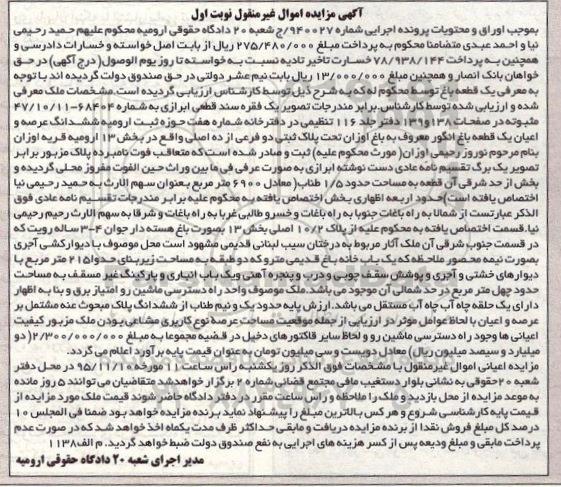 آگهی مزایده اموال غیرمنقول نوبت اول
بموجب اوراق و محتویات پرونده اجرایی شماره ۹۴۰۰۲۷/ج شعبه ۲۰ دادگاه حقوقی ارومیه محکوم علیهم حمید رحیمی
نیا و احمد عبدی متضامنا محکوم به پرداخت مبلغ ۲۷۵/۴۸۰/۰۰۰ ریال از بابت اصل خواسته و خسارات دادرسی و
همچنین به پرداخت ۷۸/۹۳۸/۱۴۴ خسارت تاخیر تادیه نسبت به خواسته تا روز یوم الوصول( درج آگهی) در حق
خواهان بانک انصار و همچنین مبلغ ۱۳/۰۰۰/۰۰۰ ریال بابت نیم عشر دولتی در حق صندوق دولت گردیده اند با توجه
به معرفی یک قطعه باغ توسط محکوم له که به شرح ذیل توسط کارشناس ارزیابی گردیده است.مشخصات ملک معرفی
شده و ارزیابی شده توسط کارشناس.برابر مندرجات تصویر یک فقره سند قطعی ابرازی به شماره ۶۸۴۰۴-۴۷/۱۰/۱۱
مثبوته در صفحات ۱۳۸و۱۳۹ دفتر جلد ۱۱۶ تنظیمی در دفترخانه شماره هفت حوزه ثبت ارومیه ششدانگ عرصه و
اعیان یک قطعه باغ انگور معروف به باغ اوزان تحت پلاک ثبتی دو فرعی از ده اصلی واقع در بخش ۱۳ ارومیه قریه اوزان
بنام مرحوم نوروز رحیمی اوزان( مورث محکوم علیه) ثبت و صادر شده است که متعاقب فوت نامبرده پلاک مزبور برابر
تصویر یک برگ تقسیم نامه عادی دست نوشته ابرازی به صورت عرفی فی ما بین وراث حین الفوت مفروز محلی گردیده و
بخش از حد شرقی آن قطعه به مساحت حدود ۱/۵ طناب( معادل ۶۹۰۰ متر مربع بعنوان سهم الارث به حمید رحیمی نیا
اختصاص یافته است)حدود اربعه اظهاری بخش اختصاص یافته به محکوم علیه برابر مندرجات تقسیم نامه عادی فوق
الذکر عبارتست از شمالا به راه باغات جنوبا به راه باغات و خسرو طالبی غربا به راه باغات و شرقا به سهم الارث رحیم رحیمی
نیا.قسمت اختصاص یافته به محکوم علیه از پلاک ۱۰/۲ اصلی بخش ۱۳ بصورت باغ هسته دار جوان ۴-۳ ساله رویت که
در قسمت جنوب شرقی آن ملک آثار مربوط به درختان سیب لبنانی قدیمی مشهود است محل موصوف با دیوارکشی آجری
بصورت نیمه محصور ملاحظه که یک باب خانه باغ قدیمی مترو که دو طبقه به مساحت زیربنای حدوا۲۱۵ متر مربع با
دیوارهای خشتی و آجری و پوشش سقف چوبی و درب و پنجره آهنی ویک باب انباری و پارکینگ غیر مسقف به مساحت
حدود چهل متر مربع در حد شمالی آن موجود می باشد.ملک موصوف واحد راه دسترسی ماشین رو امتیاز برق و بنا به اظهار
دارای یک حلقه چاه آب چاه آب مستقل می باشد.ارزش پایه حدود یک و نیم طناب از ششدانگ پلاک مبحوث عنه مشتمل بر
عرصه و اعیان با لحاظ عوامل موثر در ارزیابی از جمله موقعیت مساحت عرصه نوع کاربری مشاعی بودن ملک مزبور کیفیت
اعیانی ها وجود راه دسترسی ماشین رو و لحاظ سایر فاکتورهای دخیل در قضیه مجموعا به مبلغ ۲/۳۰۰/۰۰۰/۰۰۰( دو
میلیارد و سیصد میلیون ریال) معادل دویست و سی میلیون تومان به عنوان قیمت پایه برآورد اعلام می گردد.
مزایده اعیانی اموال غیرمنقول با مشخصات فوق الذکر روز یکشنبه راس ساعت ۱۱ مورخه ۹۵/۱۱/۱۰ در محل دفتر
شعبه ۲۰حقوقی به نشانی بلوار دستغیب مافی مجتمع قضائی شماره ۲ برگزار خواهد شد متقاضیان می توانند ۵ روز مانده
به موعد مزایده از محل بازدید و ملک را ملاحظه و راس ساعت مقرر در دفتر دادگاه حاضر شوند قیمت ملک مورد مزایده از
قیمت پایه کارشناسی شروع و هر کس بالاترین مبلغ را پیشنهاد نماید برنده مزایده خواهد بود ضمنا فی المجلس ۱۰
درصد کل مبلغ فروش نقدا از برنده مزایده دریافت و مابقی حداکثر ظرف مدت یکماه اخذ خواهد شد که در صورت عدم
پرداخت مابقی و مبلغ ودیعه پس از کسر هزینه های اجرایی به نفع صندوق دولت ضبط خواهد گردید. م الف۱۱۳۸
مدیر اجرای شعبه ۲۰ دادگاه حقوقی ارومیه